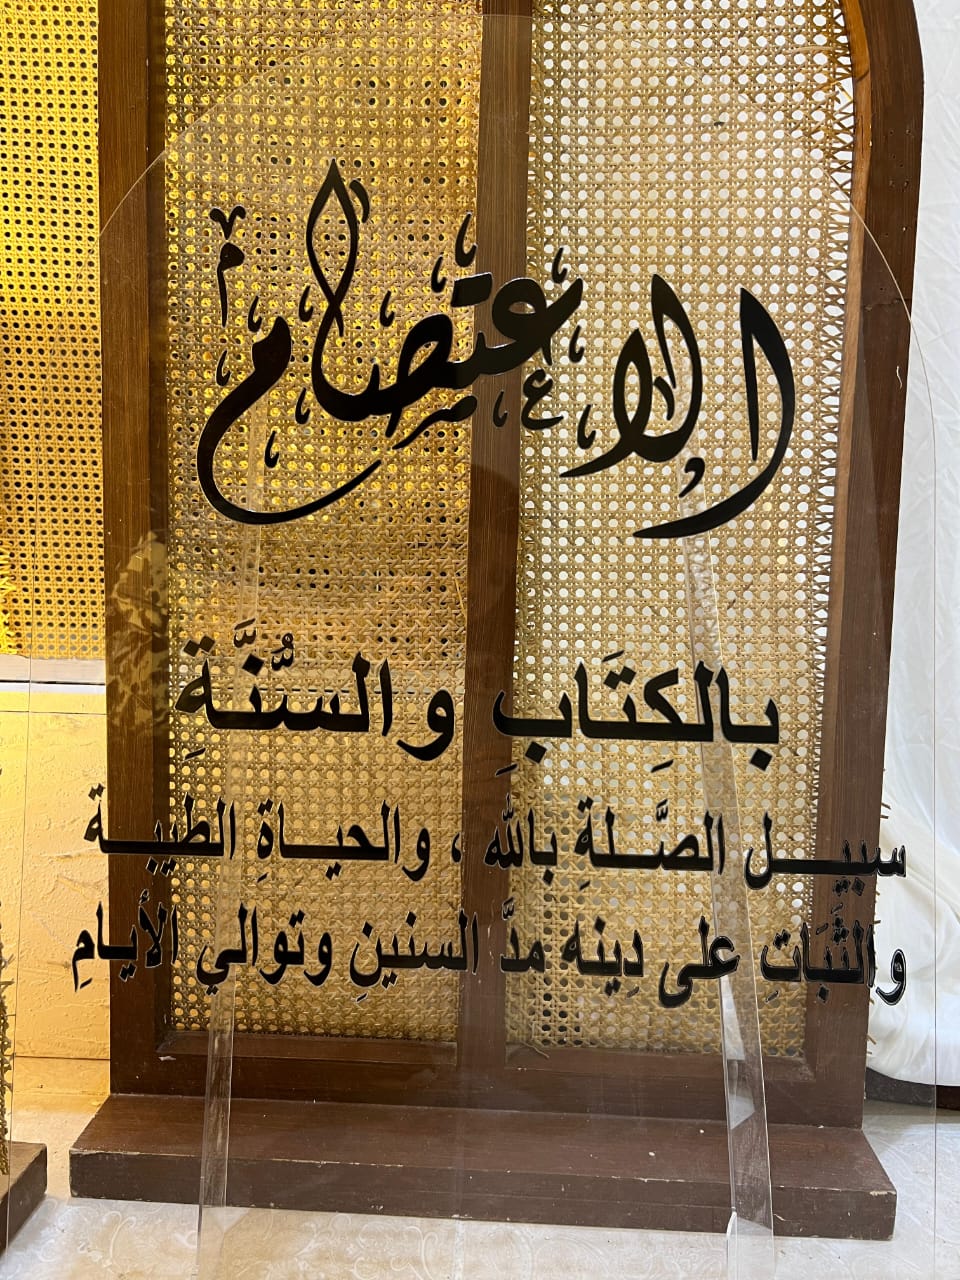 الإعتصام
بالكِتَابِ والسُّنَّةِ
سبيل الصَّلةِ بالله ، والحياةِ الطيبة
والثَّبَاتِ على دِينه مدَّ السنينِ وتوالي الأيامِ